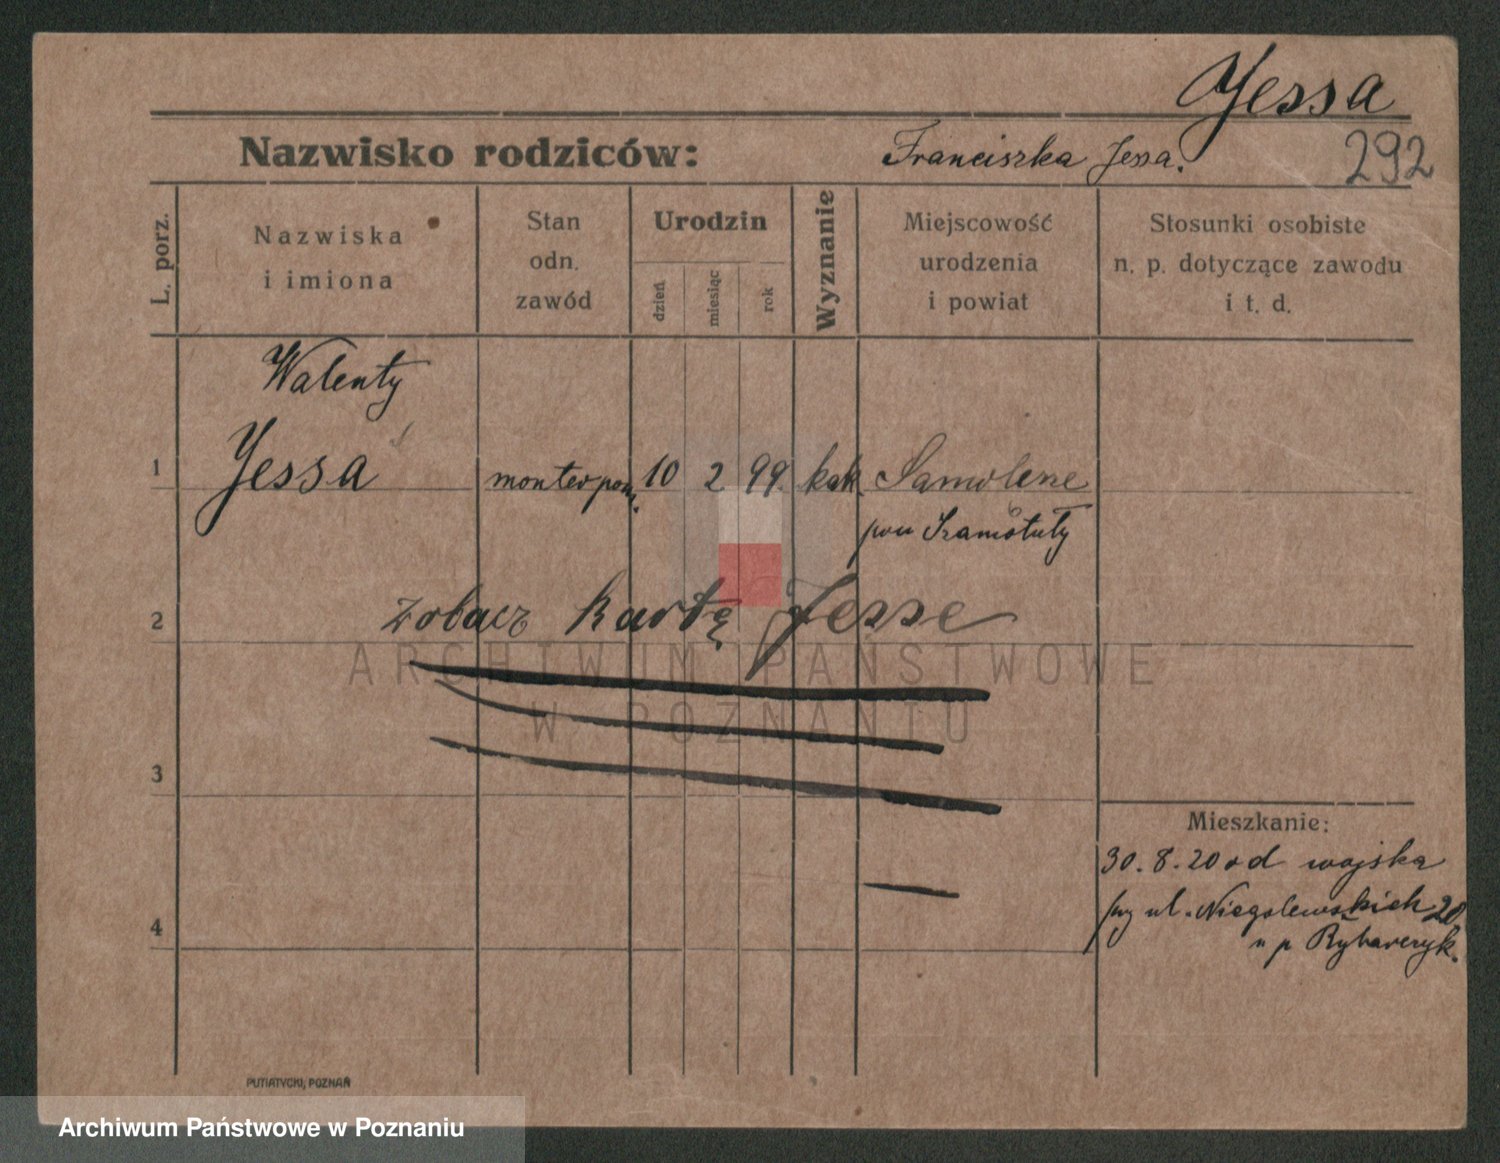 Jessa
292
Nazwisko rodziców: Franciszka Jessa.
L. porz.
Nazwiska
i imiona
Stan
odn.
zawód
Urodzin
dzień
miesiąc
rok
Wyznanie
Miejscowość
urodzenia
i powiat
Stosunki osobiste
n. p. dotyczące zawodu
i t. d.
Walenty
1 Jessa monter pom. 10 2 99. kat. Samolęże
pow Szamotuły
2 zobacz kartę Jesse
ARCHIWUM PAŃSTWOWE
W POZNANIU
3
Mieszkanie:
30.8.20 od wojska
przy ul. Niegolewskich 20
4 u p Rybarczyk.
PUTIATYCKI, POZNAŃ
Archiwum Państwowe w Poznaniu